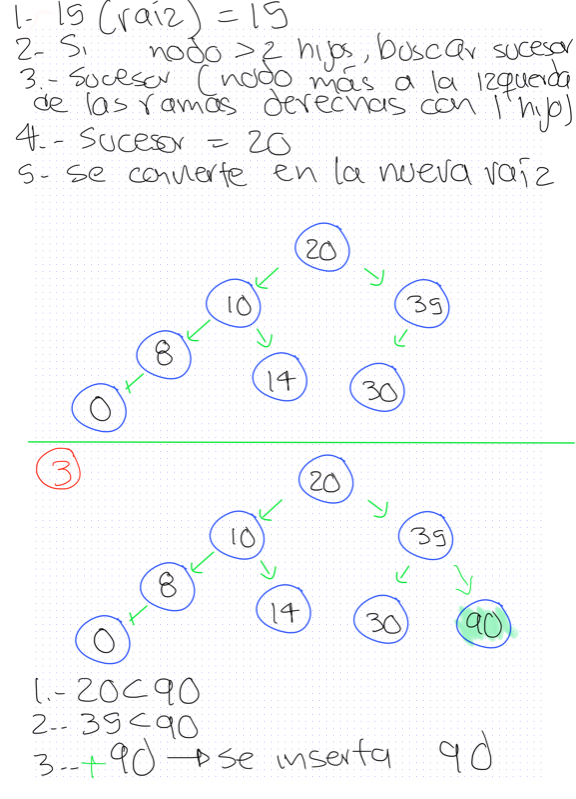 1- 15 (raíz) = 15
2- Si nodo > 2 hijos, buscar sucesor
3.- Sucesor (nodo más a la izquierda
de las ramas derechas con 1 hijo)
4.- Sucesor = 20
5- Se convierte en la nueva raíz
20
10 39
8
14 30
0
3
20
10 39
8
14 30 90
0
1.- 20 < 90
2.- 39 < 90
3.- + 90 → se inserta 90